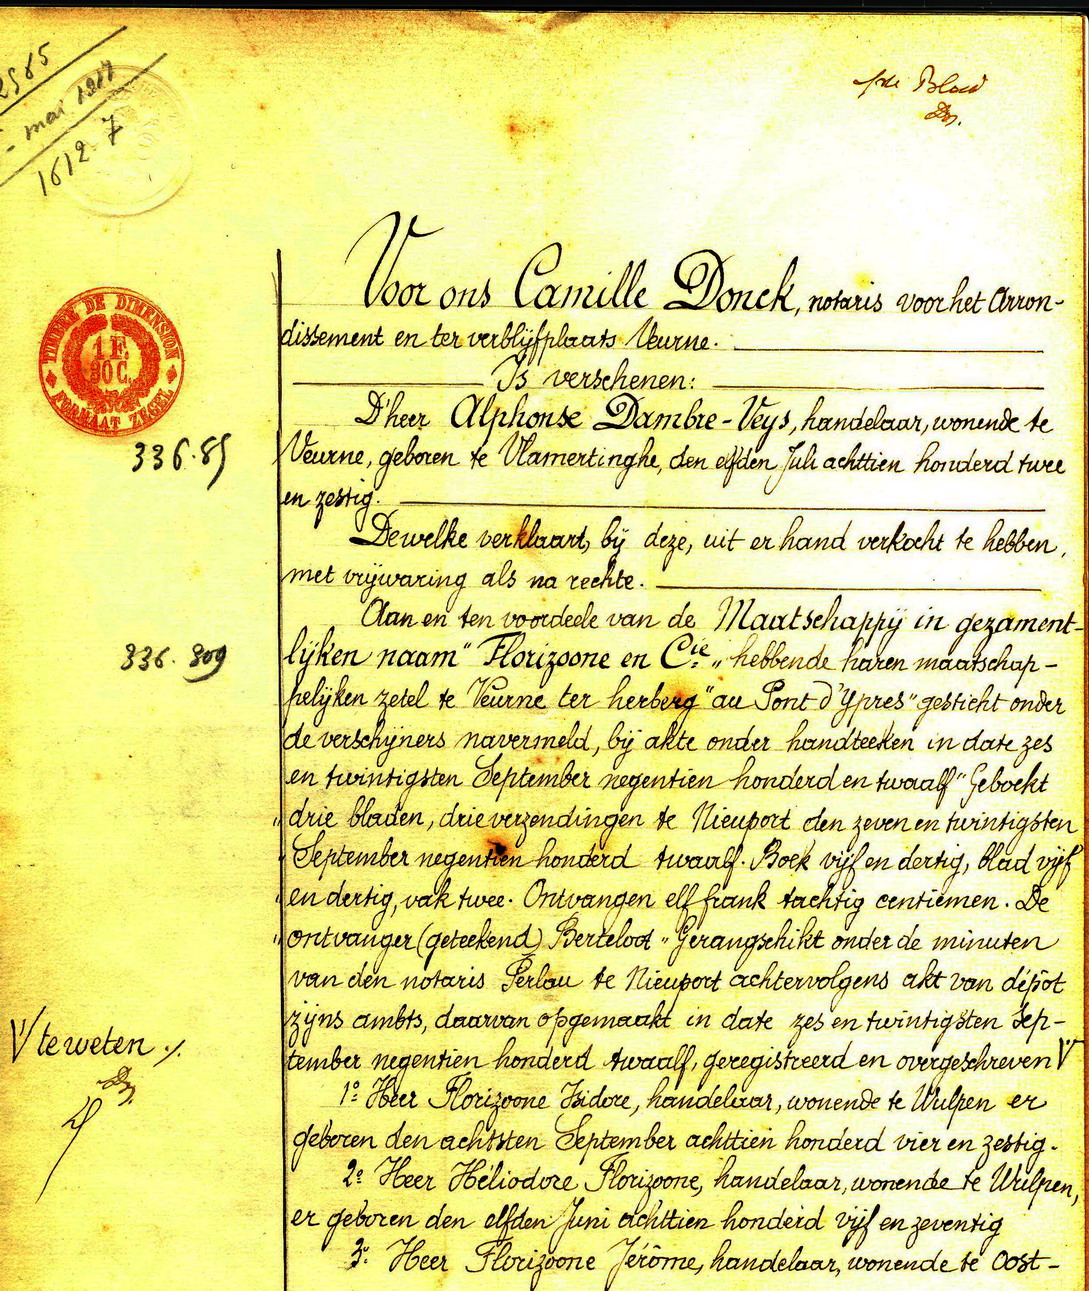 2565
mai 1917
1612.7
1ste Blad
TIMBRE DE DIMENSION
1 F.
80 C.
FORMAAT ZEGEL
336.85
336.309
V te weten ./.
Voor ons Camille Donck, notaris voor het Arron-
dissement en ter verblijfplaats Veurne.
Is verschenen:
D'heer Alphonse Dambre-Veys, handelaar, wonende te
Veurne, geboren te Vlamertinghe, den elfden Juli achttien honderd twee
en zestig.
Dewelke verklaart, bij deze, uit er hand verkocht te hebben,
met vrijwaring als na rechte.
Aan en ten voordeele van de Maatschappij in gezament-
lijken naam "Florizoone en Cie" hebbende haren maatschap-
pelijken zetel te Veurne ter herberg "au Pont d'Ypres" gesticht onder
de verschijners navermeld, bij akte onder handteeken in date zes
en twintigsten September negentien honderd en twaalf "Geboekt
" drie bladen, drie verzendingen te Nieuport den zeven en twintigsten
" September negentien honderd twaalf. Boek vijf en dertig, blad vijf
" en dertig, vak twee. Ontvangen elf frank tachtig centiemen. De
" ontvanger (geteekend) Berteloot" Gerangschikt onder de minuten
van den notaris Perlau te Nieuport achtervolgens akt van dépôt
zijns ambts, daarvan opgemaakt in date zes en twintigsten Sep-
tember negentien honderd twaalf, geregistreerd en overgeschreven V
1º Heer Florizoone Isidore, handelaar, wonende te Wulpen er
geboren den achtsten September achttien honderd vier en zestig.
2º Heer Héliodore Florizoone, handelaar, wonende te Wulpen,
er geboren den elfden Juni achttien honderd vijf en zeventig
3º Heer Florizoone Jérôme, handelaar, wonende te Oost-